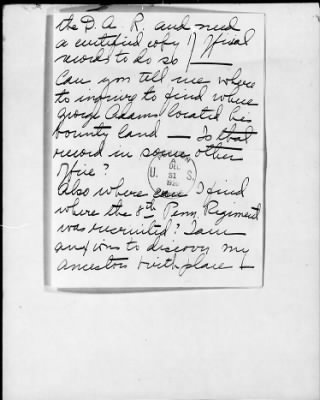 the D. A. R. and need
a certified copy of official
records to do so.
Can you tell me where
to inquire to find where
George Adams located his
bounty land — Is that
record in some other
office?
DEC
31
U. S.
Also where can I find
where the 8th Penn Regiment
was recruited? I am
anxious to discover my
ancestors birthplace —